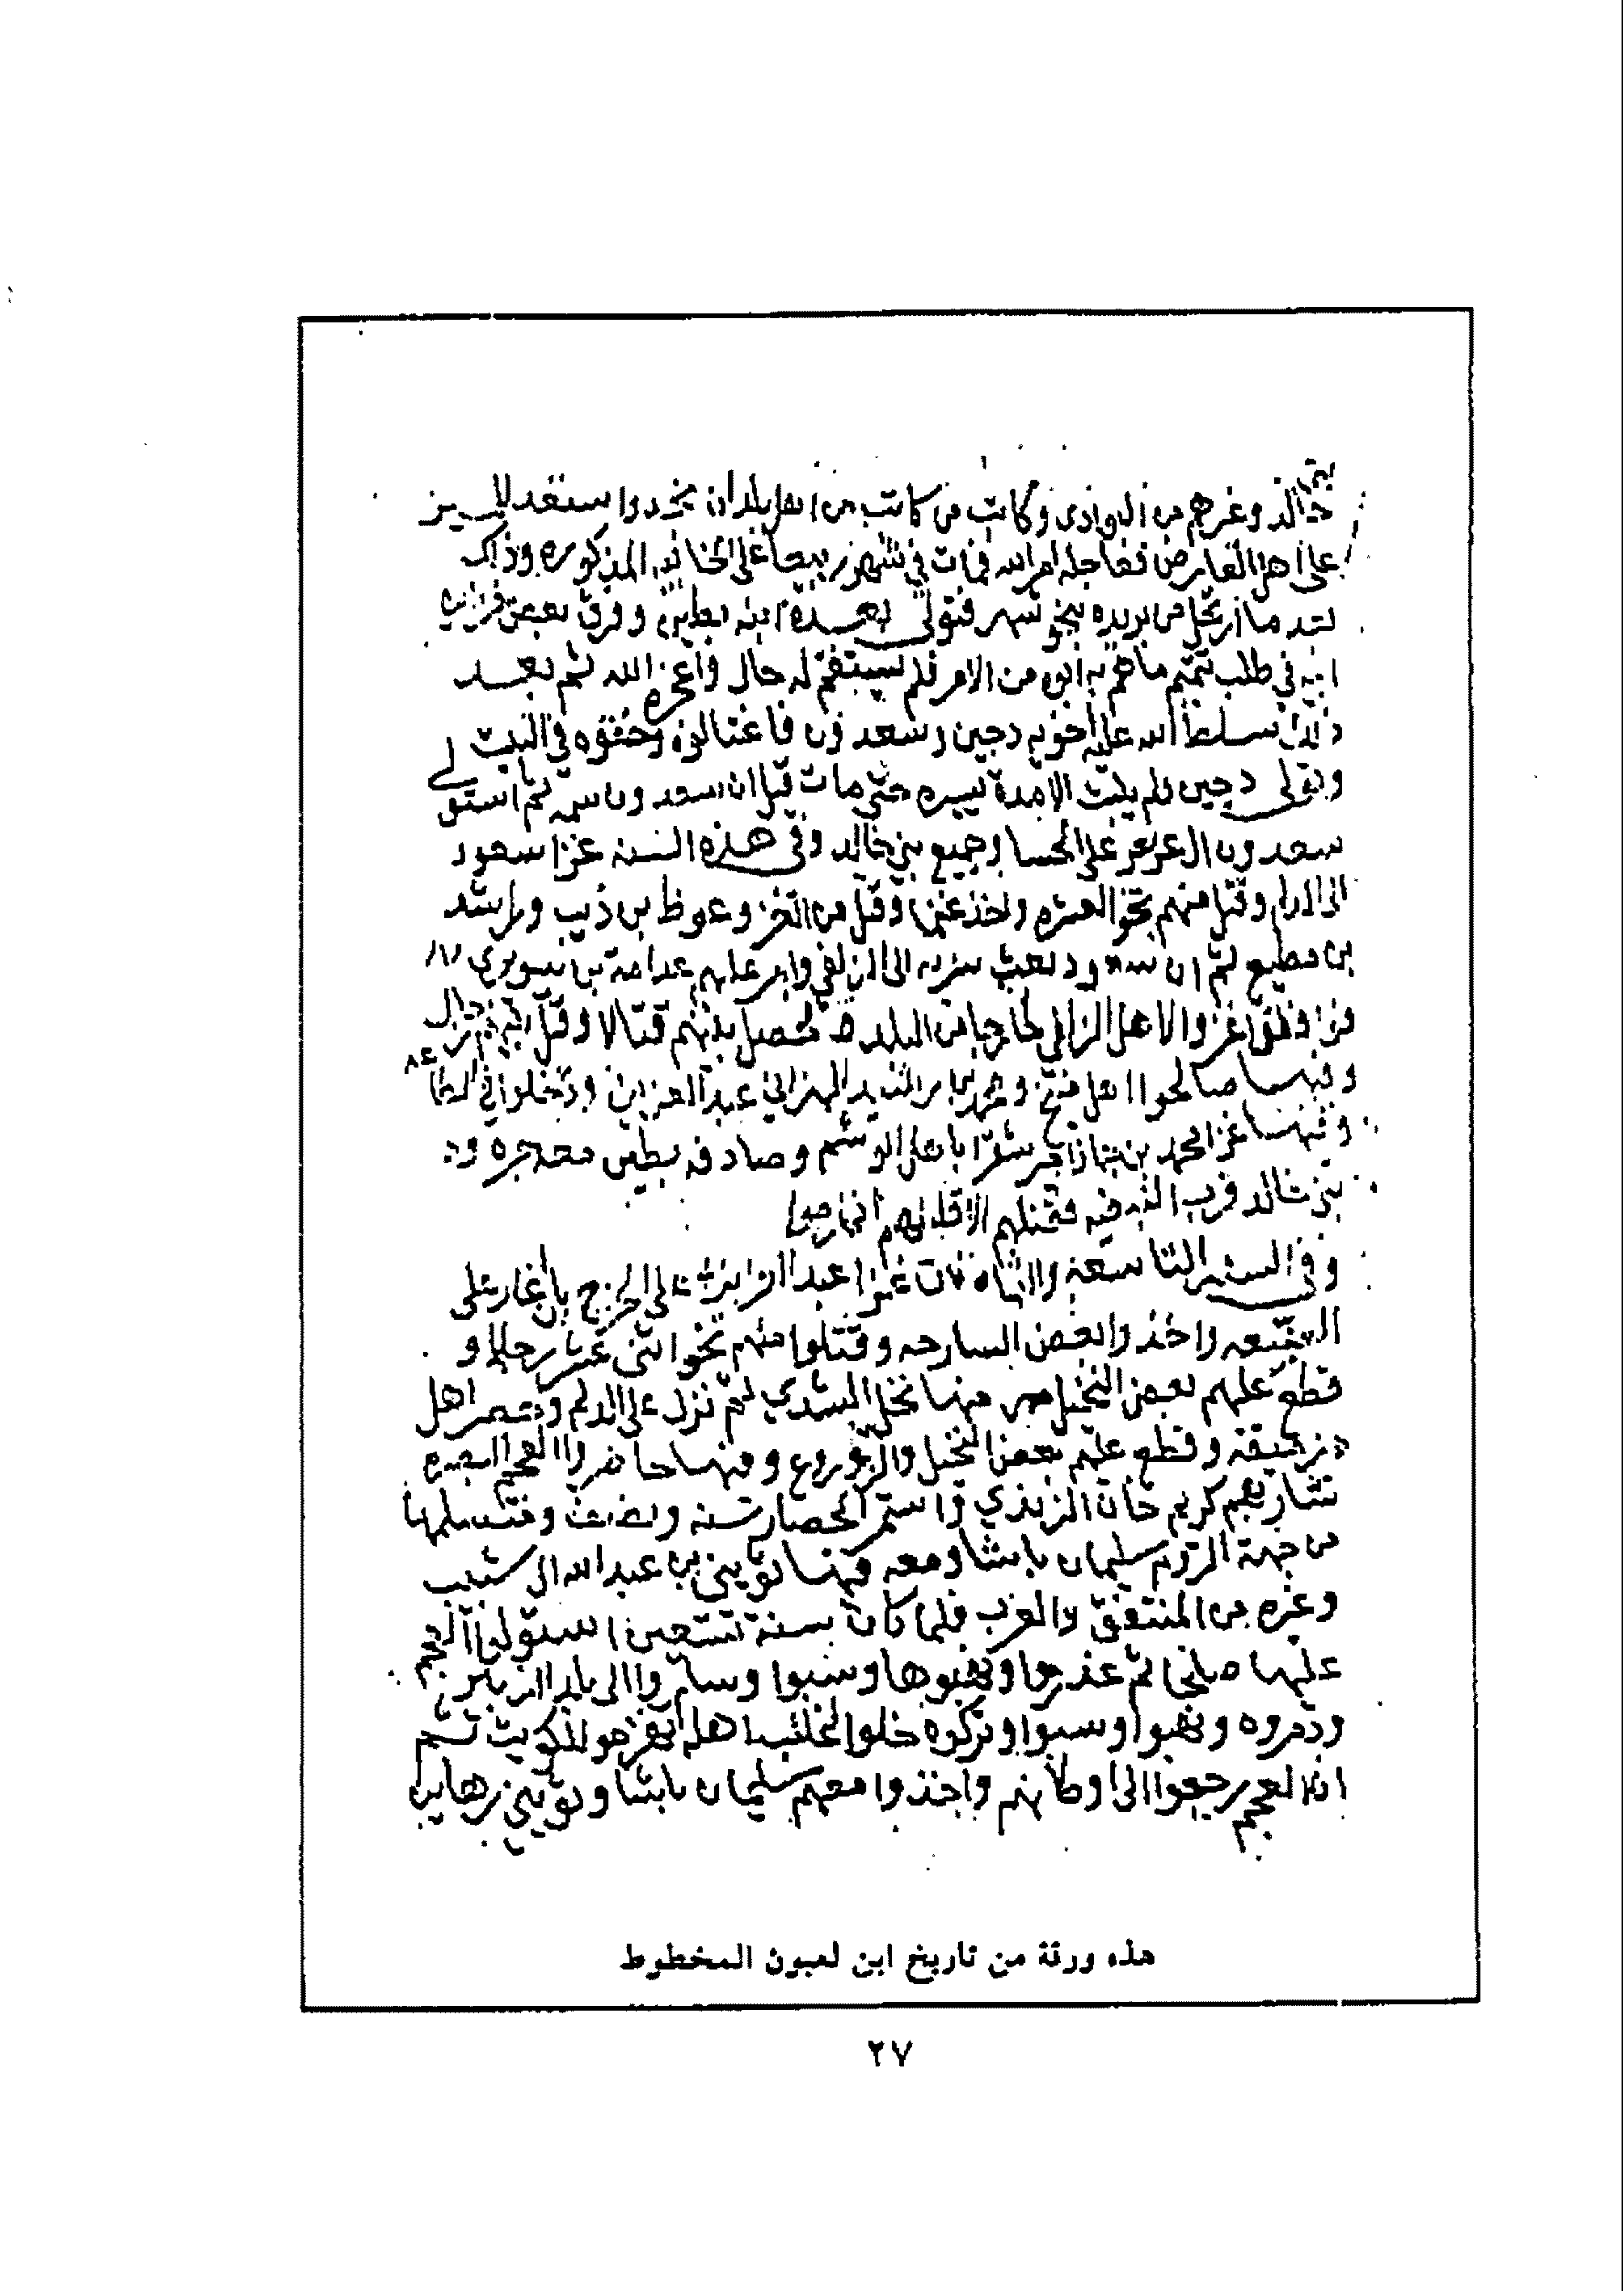 بني
خالد وغيرهم من البوادي وكاتب من كاتب من اهل بلدان نجد واستعد للمسير
على اهل العارض فعاجله امر الله فمات في شهر ربيع على الخابيه المذكوره وذلك
بعد ما ارتحل من بريده بنحو شهر فتولى بعده ابنه بطين وفرق بعض خزاين
ابيه في طلب تتميم ما هم به ابوه من الامر فلم يستقم له حال واعجزه الله ثم بعد
ذلك سلط الله عليه اخويه دجين وسعدون فاغتالوه وخنقوه في البيت
وتولى دجين فلم يلبث الا مدة يسيره حتى مات قيل ان سعدون سمه ثم استولى
سعدون ال عريعر على الحسا وجميع بني خالد وفي هذه السنه غزا سعود
الى الدلم وقتل منهم نحو العشره واخذ غنما وقتل من الغزو عوظ بن ذيب وراشد
بن مطيع ثم ان سعود بعث سريه الى الزلفي وامر عليهم عدامة بن سويري
فوافقوا غزوا لاهل الزلفي خارجا من البلد فحصل بينهم قتالا وقتل بينهم رجال
وفيها صالحوا اهل منيخ وحرمه الهزاني عبدالعزيز ودخلوا في الطاعه
وفيها غزا محمد بن جماز امير شقرا باهل الوشم وصادفه بطين معه جرده
بني خالد قرب النبقيه فقتلهم الا قليل منهم انهزموا
وفي السنه التاسعه والثمانون غزا عبد العزيز على الخرج بان اغار على
الضبيعه واخذ بعض السارحه وقتلوا منهم نحو اثنى عشر رجلا و
قطع عليهم بعض النخيل منها نخل البشدي ثم نزل على الدلم وحصر اهل
نعجان وقطع عليهم بعض النخيل والزروع وفيها حاصروا العجم البصره
سارهم كريم خان الزندي واستمر الحصار سنه ونصف ومتسلمها
من جهة الروم سليمان باشا ومعه فيها ثويني بن عبدالله ال شبيب
وغيره من المنتفق والعرب فلما كان بسنة تسعين استولوا العجم
عليها صلحا ثم غدروا ونهبوها وسبوا وساروا الى بلد الزبير
ودمروه ونهبوا وسبوا وتركوه خلوا لان غالب اهله انهزموا للكويت ثم
ان العجم رجعوا الى اوطانهم واخذوا معهم سليمان باشا وثويني رهاين
هذه ورقة من تاريخ ابن لعبون المخطوط
٢٧